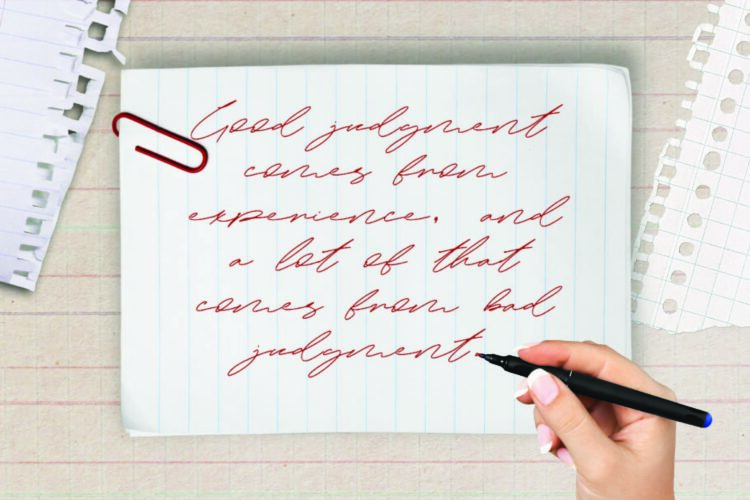 Good judgment
comes from
experience, and
a lot of that
comes from bad
judgment.